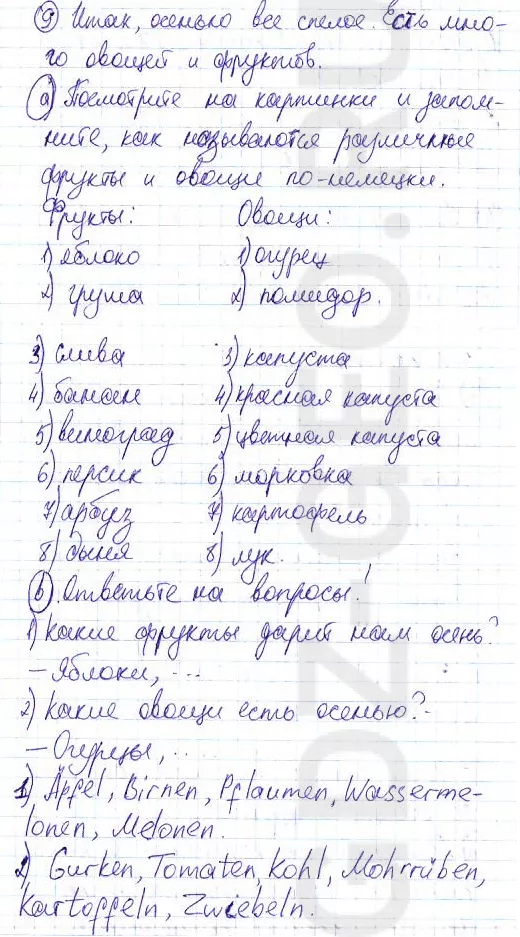 9) Итак, осенью все спелое. Есть мно-
го овощей и фруктов.
a) Посмотрите на картинки и запом-
ните, как называются различные
фрукты и овощи по-немецки.
Фрукты: Овощи:
1) яблоко 1) огурец
2) груша 2) помидор.
3) слива 3) капуста
4) банан 4) красная капуста
5) виноград 5) цветная капуста
6) персик 6) морковка
7) арбуз 7) картофель
8) дыня 8) лук.
b). Ответьте на вопросы!
1) Какие фрукты дарит нам осень?
– Яблоки, ...
2) Какие овощи есть осенью?
– Огурцы, ..
1) Äpfel, Birnen, Pflaumen, Wasserme-
lonen, Melonen.
2) Gurken, Tomaten, Kohl, Mohrrüben,
Kartoffeln, Zwiebeln.
GDZ-GEO.RU